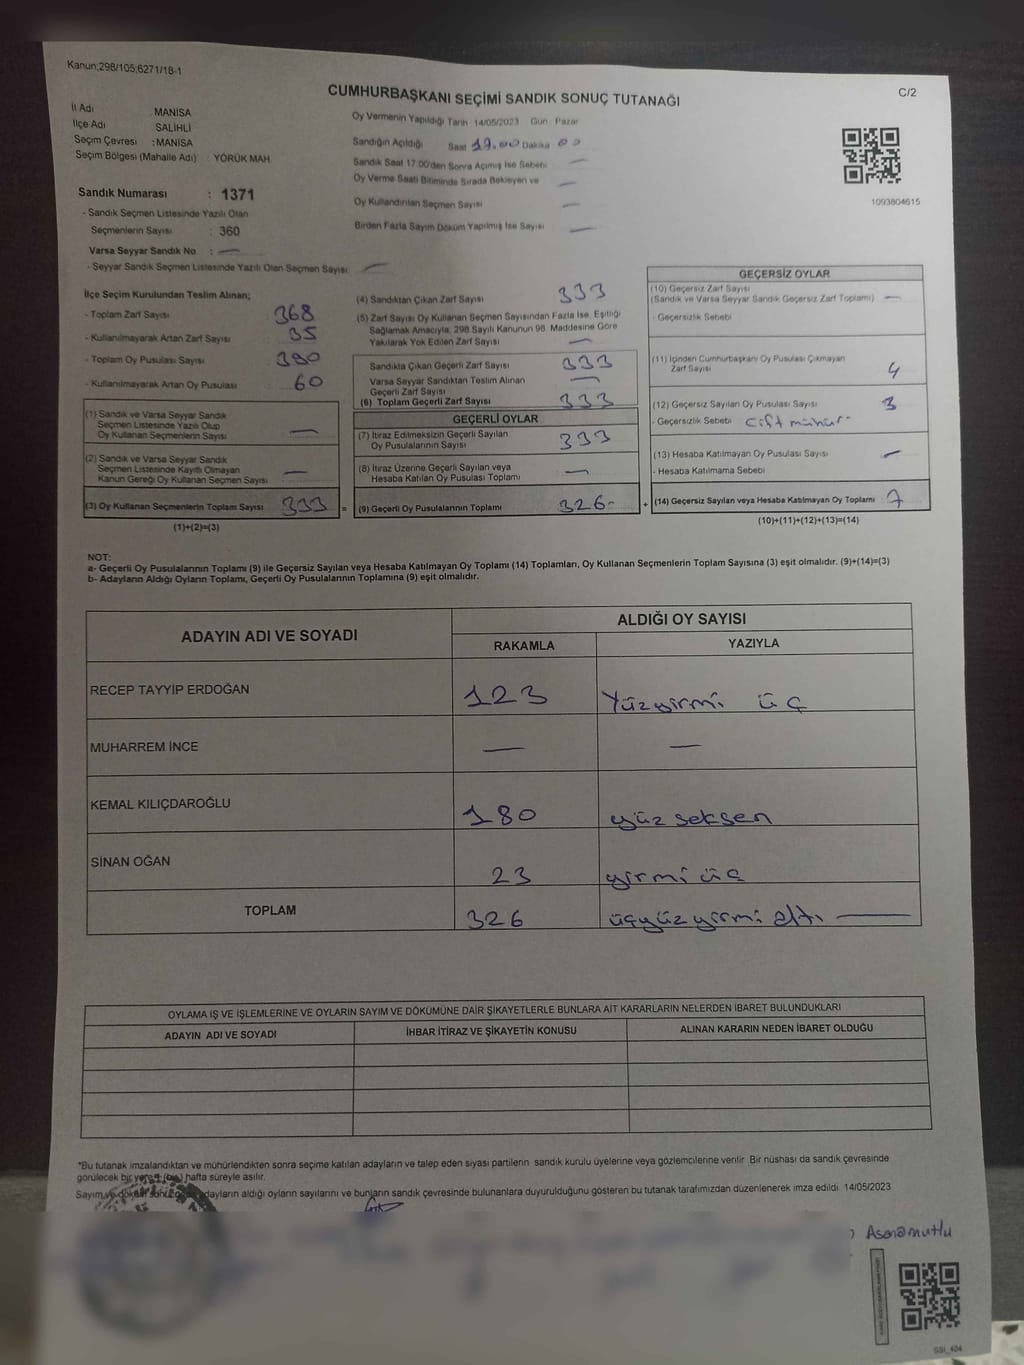 Kanun;298/105;6271/18-1
C/2
CUMHURBAŞKANI SEÇİMİ SANDIK SONUÇ TUTANAĞI
İl Adı MANİSA
İlçe Adı SALİHLİ
Seçim Çevresi : MANİSA
Seçim Bölgesi (Mahalle Adı) YÖRÜK MAH
Sandık Numarası : 1371
- Sandık Seçmen Listesinde Yazılı Olan
Seçmenlerin Sayısı : 360
Varsa Seyyar Sandık No : —
- Seyyar Sandık Seçmen Listesinde Yazılı Olan Seçmen Sayısı: —
Oy Vermenin Yapıldığı Tarih 14/05/2023 Gün Pazar
Sandığın Açıldığı Saat 17.00 Dakika 00
Sandık Saat 17:00'den Sonra Açılmış İse Sebebi —
Oy Verme Saati Bitiminde Sırada Bekleyen ve —
Oy Kullandırılan Seçmen Sayısı —
Birden Fazla Sayım Döküm Yapılmış İse Sayısı —
1093804615
İlçe Seçim Kurulundan Teslim Alınan;
- Toplam Zarf Sayısı 368
- Kullanılmayarak Artan Zarf Sayısı 35
- Toplam Oy Pusulası Sayısı 380
- Kullanılmayarak Artan Oy Pusulası 60
(1) Sandık ve Varsa Seyyar Sandık
Seçmen Listesinde Yazılı Olup
Oy Kullanan Seçmenlerin Sayısı —
(2) Sandık ve Varsa Seyyar Sandık
Seçmen Listesinde Kayıtlı Olmayan
Kanun Gereği Oy Kullanan Seçmen Sayısı —
(3) Oy Kullanan Seçmenlerin Toplam Sayısı 333 =
(1)+(2)=(3)
(4) Sandıktan Çıkan Zarf Sayısı 333
(5) Zarf Sayısı Oy Kullanan Seçmen Sayısından Fazla İse, Eşitliği
Sağlamak Amacıyla, 298 Sayılı Kanunun 98. Maddesine Göre
Yakılarak Yok Edilen Zarf Sayısı —
Sandıkta Çıkan Geçerli Zarf Sayısı 333
Varsa Seyyar Sandıktan Teslim Alınan
Geçerli Zarf Sayısı —
(6) Toplam Geçerli Zarf Sayısı 333
GEÇERLİ OYLAR
(7) İtiraz Edilmeksizin Geçerli Sayılan
Oy Pusulalarının Sayısı 333
(8) İtiraz Üzerine Geçerli Sayılan veya
Hesaba Katılan Oy Pusulası Toplamı —
(9) Geçerli Oy Pusulalarının Toplamı 326- +
GEÇERSİZ OYLAR
(10) Geçersiz Zarf Sayısı
(Sandık ve Varsa Seyyar Sandık Geçersiz Zarf Toplamı) —
- Geçersizlik Sebebi
(11) İçinden Cumhurbaşkanı Oy Pusulası Çıkmayan
Zarf Sayısı 4
(12) Geçersiz Sayılan Oy Pusulası Sayısı 3
- Geçersizlik Sebebi Çift mühür
(13) Hesaba Katılmayan Oy Pusulası Sayısı —
- Hesaba Katılmama Sebebi
(14) Geçersiz Sayılan veya Hesaba Katılmayan Oy Toplamı 7
(10)+(11)+(12)+(13)=(14)
NOT:
a- Geçerli Oy Pusulalarının Toplamı (9) ile Geçersiz Sayılan veya Hesaba Katılmayan Oy Toplamı (14) Toplamları, Oy Kullanan Seçmenlerin Toplam Sayısına (3) eşit olmalıdır. (9)+(14)=(3)
b- Adayların Aldığı Oyların Toplamı, Geçerli Oy Pusulalarının Toplamına (9) eşit olmalıdır.
ADAYIN ADI VE SOYADI
ALDIĞI OY SAYISI
RAKAMLA YAZIYLA
RECEP TAYYİP ERDOĞAN 123 Yüzyirmi üç
MUHARREM İNCE — —
KEMAL KILIÇDAROĞLU 180 yüz seksen
SİNAN OĞAN 23 yirmi üç
TOPLAM 326 üçyüz yirmi altı —
OYLAMA İŞ VE İŞLEMLERİNE VE OYLARIN SAYIM VE DÖKÜMÜNE DAİR ŞİKAYETLERLE BUNLARA AİT KARARLARIN NELERDEN İBARET BULUNDUKLARI
ADAYIN ADI VE SOYADI İHBAR İTİRAZ VE ŞİKAYETİN KONUSU ALINAN KARARIN NEDEN İBARET OLDUĞU
*Bu tutanak imzalandıktan ve mühürlendikten sonra seçime katılan adayların ve talep eden siyasi partilerin sandık kurulu üyelerine veya gözlemcilerine verilir. Bir nüshası da sandık çevresinde
görülecek bir yere 1 (bir) hafta süreyle asılır.
Sayım ve döküm adayların aldığı oyların sayılarını ve bunların sandık çevresinde bulunanlara duyurulduğunu gösteren bu tutanak tarafımızdan düzenlenerek imza edildi. 14/05/2023
GSI_404